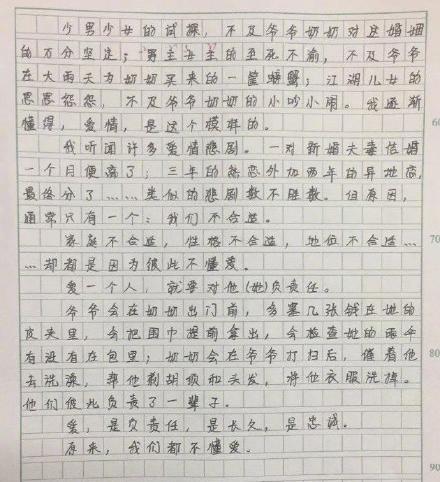 少男少女的试探，不及爷爷奶奶对这婚姻
的万分坚定；男主女主的至死不渝，不及爷爷
在大雨天为奶奶买来的一筐螃蟹；江湖儿女的
恩恩怨怨，不及爷爷奶奶的小吵小闹。我逐渐
懂得，爱情，是这个模样的。
我听闻许多爱情悲剧。一对新婚夫妻结婚
一个月便离了；三年的热恋外加两年的异地恋，
最终分了……类似的悲剧数不胜数。但原因，
通常只有一个：我们不合适。
家庭不合适，性格不合适，地位不合适…
…却都是因为彼此不懂爱。
爱一个人，就要对他(她)负责任。
爷爷会在奶奶出门前，多塞几张钱在她的
皮夹里，会把围巾提前拿出，会检查她的雨伞
有没有在包里；奶奶会在爷爷打扫后，催着他
去洗澡，帮他剃胡须和头发，将他衣服洗掉。
他们彼此负责了一辈子。
爱，是负责任，是长久，是忠诚。
原来，我们都不懂爱。
70
80
90